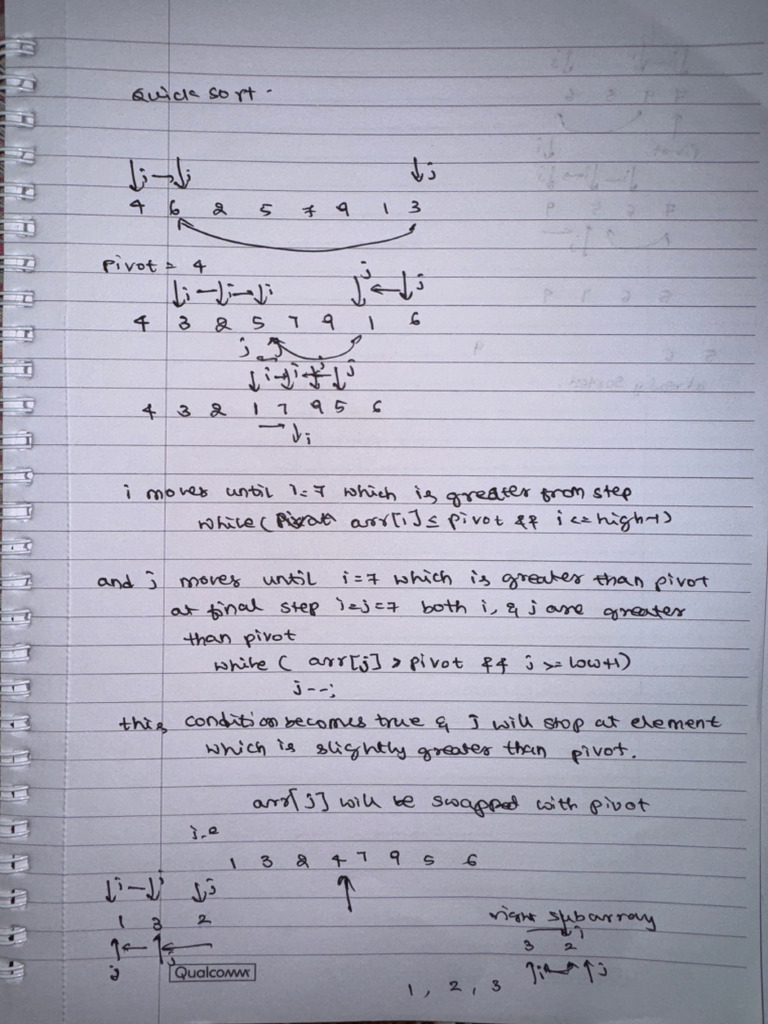 Quick sort -
↓i → ↓i ↓j
4 6 2 5 7 9 1 3
pivot = 4
↓i → ↓i → ↓i ↓j ← ↓j
4 3 2 5 7 9 1 6
j
↓i → ↓i ↓ ↓j
4 3 2 1 7 9 5 6
→ ↓i
i moves until i=7 which is greater from step
while( arr[i] ≤ pivot && i <= high-1)
and j moves until i=7 which is greater than pivot
at final step i=j=7 both i, & j are greater
than pivot
while ( arr[j] > pivot && j >= low+1)
j--;
this condition becomes true & j will stop at element
which is slightly greater than pivot.
arr[j] will be swapped with pivot
i.e
1 3 2 4 7 9 5 6
↓i → ↓i ↓j
right subarray
1 3 2
3 2
j
↑i → ↑j
Qualcomm
1, 2, 3